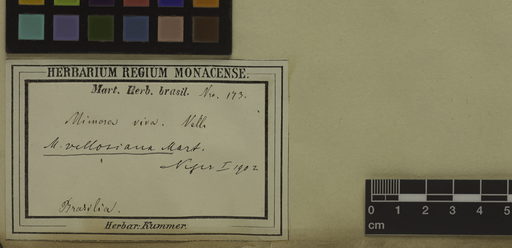 HERBARIUM REGIUM MONACENSE.
Mart. Herb. brasil. No. 173.
Mimosa viva. Vell.
M. vellosiana Mart.
I 1902
Brasilia.
Herbar. Kummer.
0 1 2 3 4 5
cm